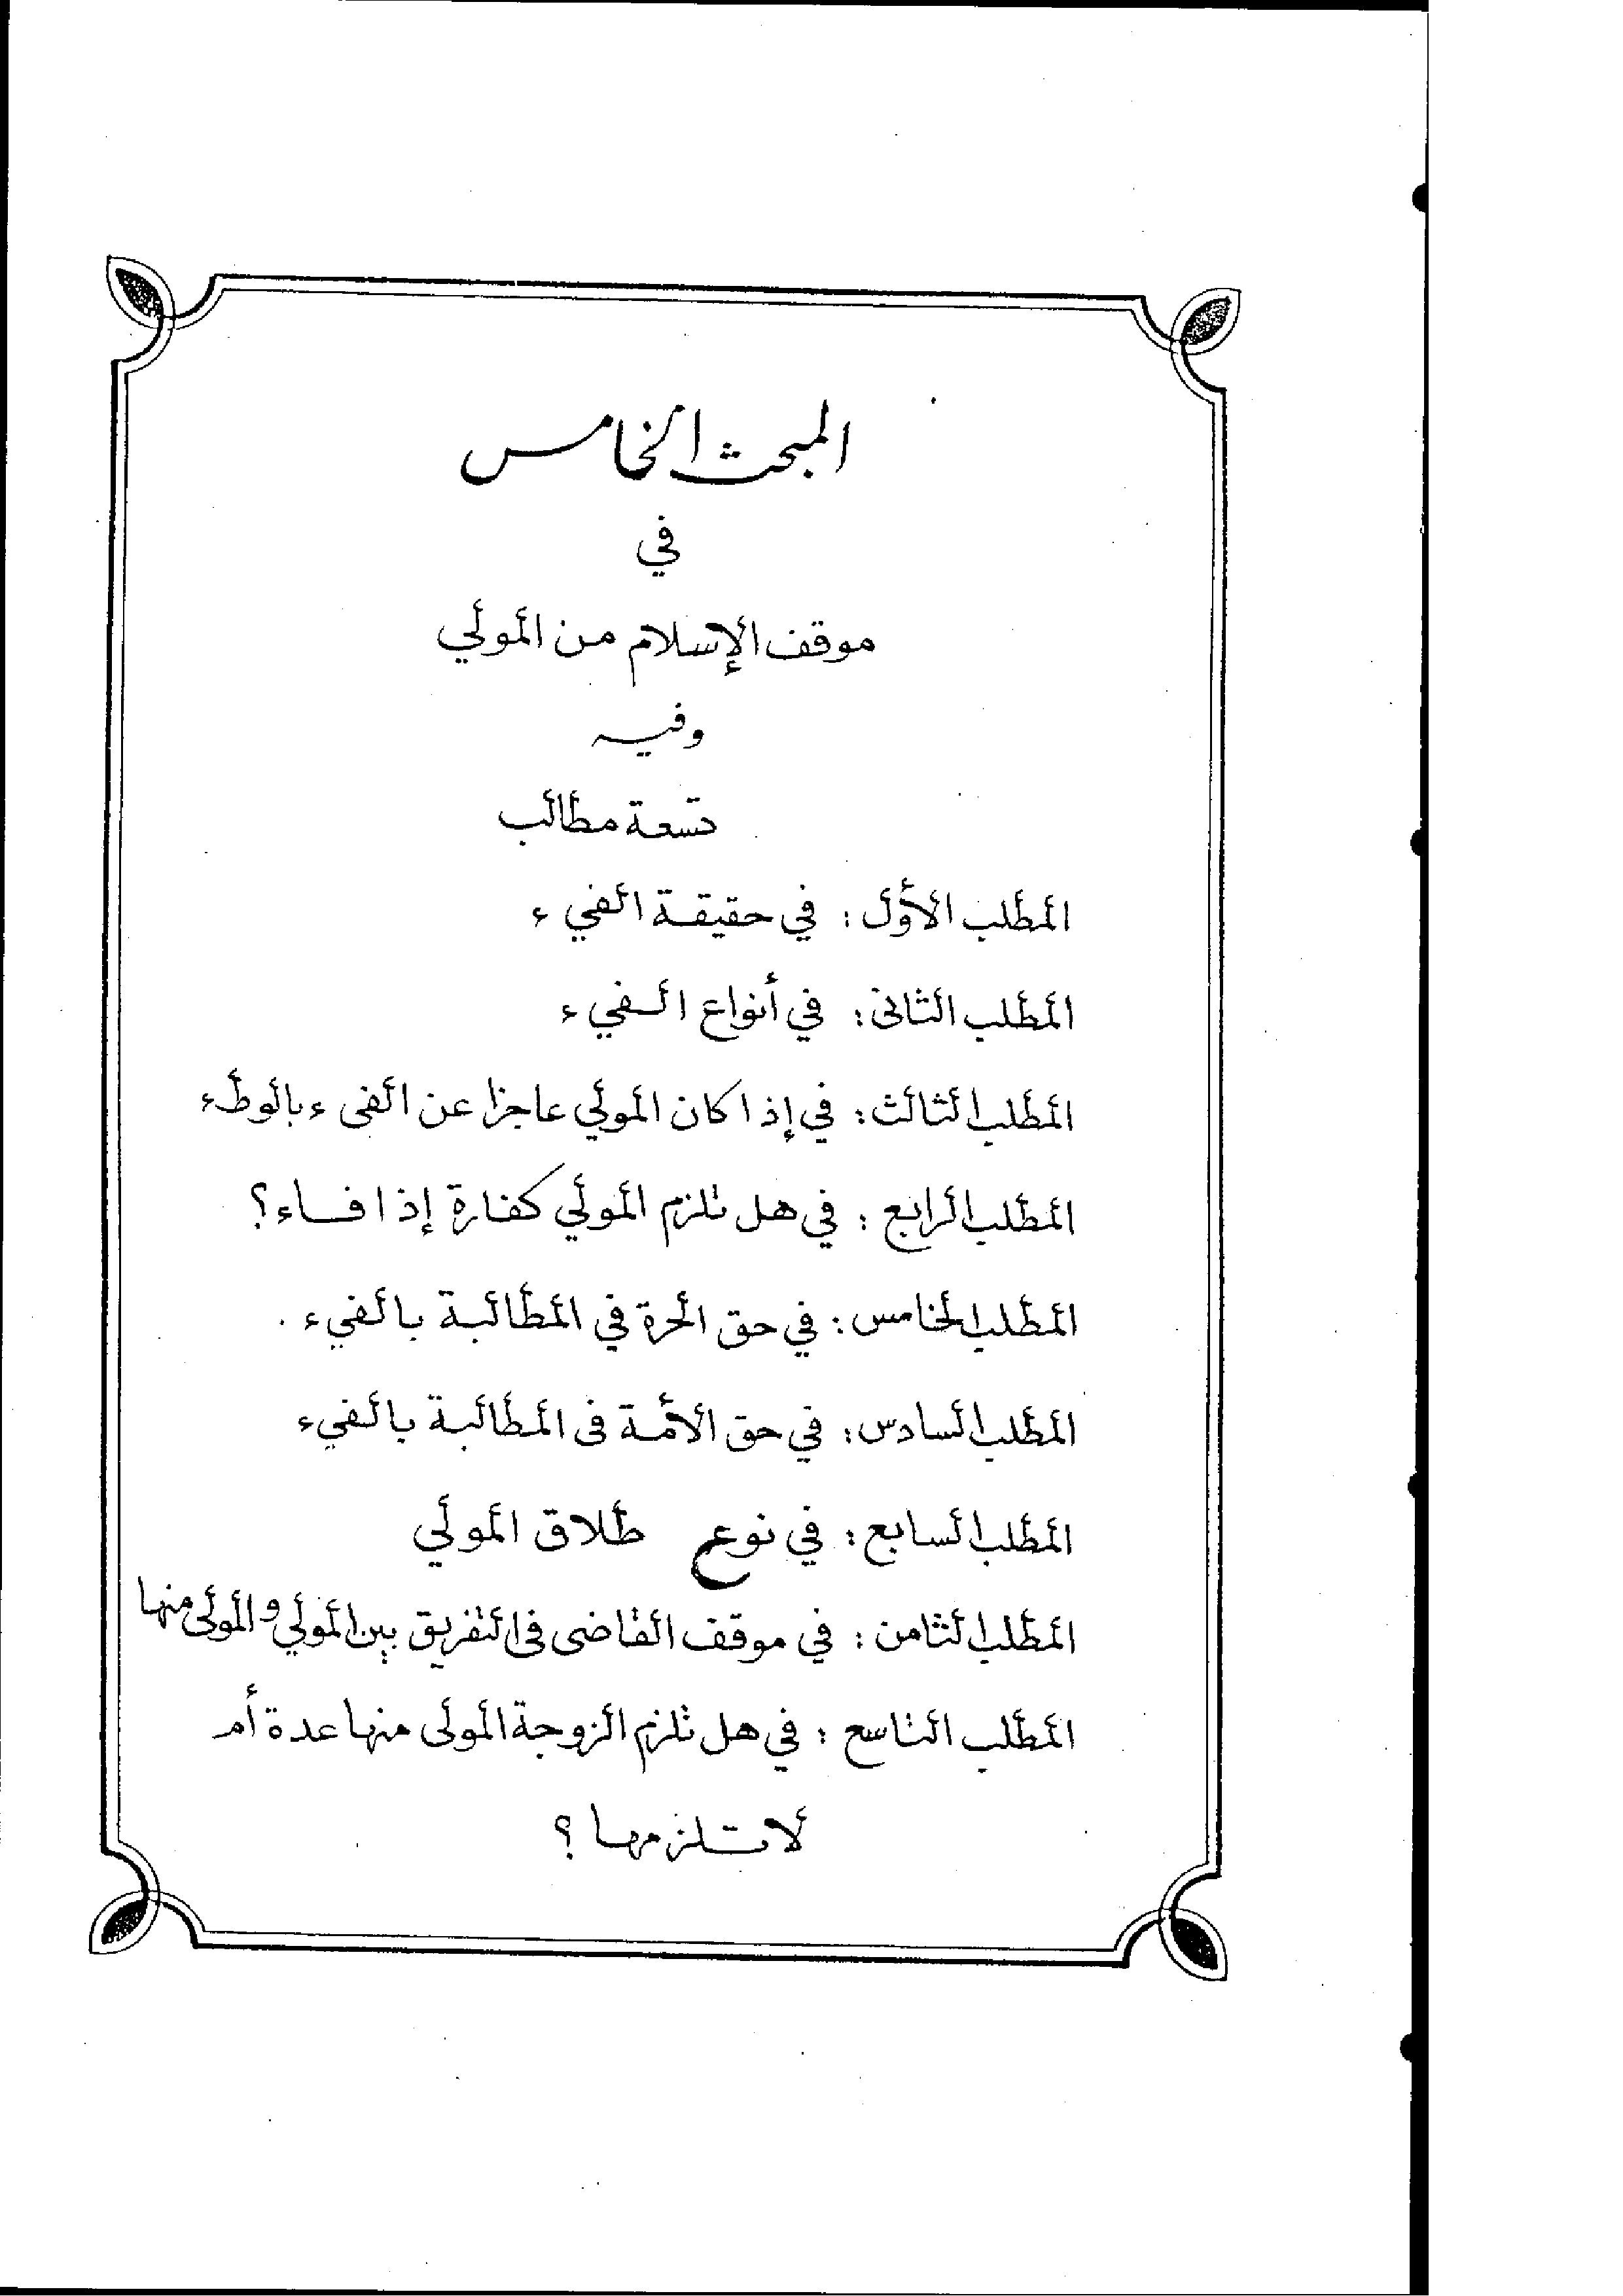 المبحث الخامس
في
موقف الإسلام من المولي
وفيه
تسعة مطالب
المطلب الأول : في حقيقة الفيء
المطلب الثاني : في أنواع الفيء
المطلب الثالث : في إذا كان المولي عاجزا عن الفىء بالوطء
المطلب الرابع : في هل تلزم المولي كفارة إذا فاء ؟
المطلب الخامس : في حق الحرة في المطالبة بالفيء .
المطلب السادس : في حق الأمة فى المطالبة بالفيء
المطلب السابع : في نوع طلاق المولي
المطلب الثامن : في موقف القاضى فى التفريق بين المولي والمولى منها
المطلب التاسع : في هل تلزم الزوجة المولى منها عدة أم
لا تلزمها ؟